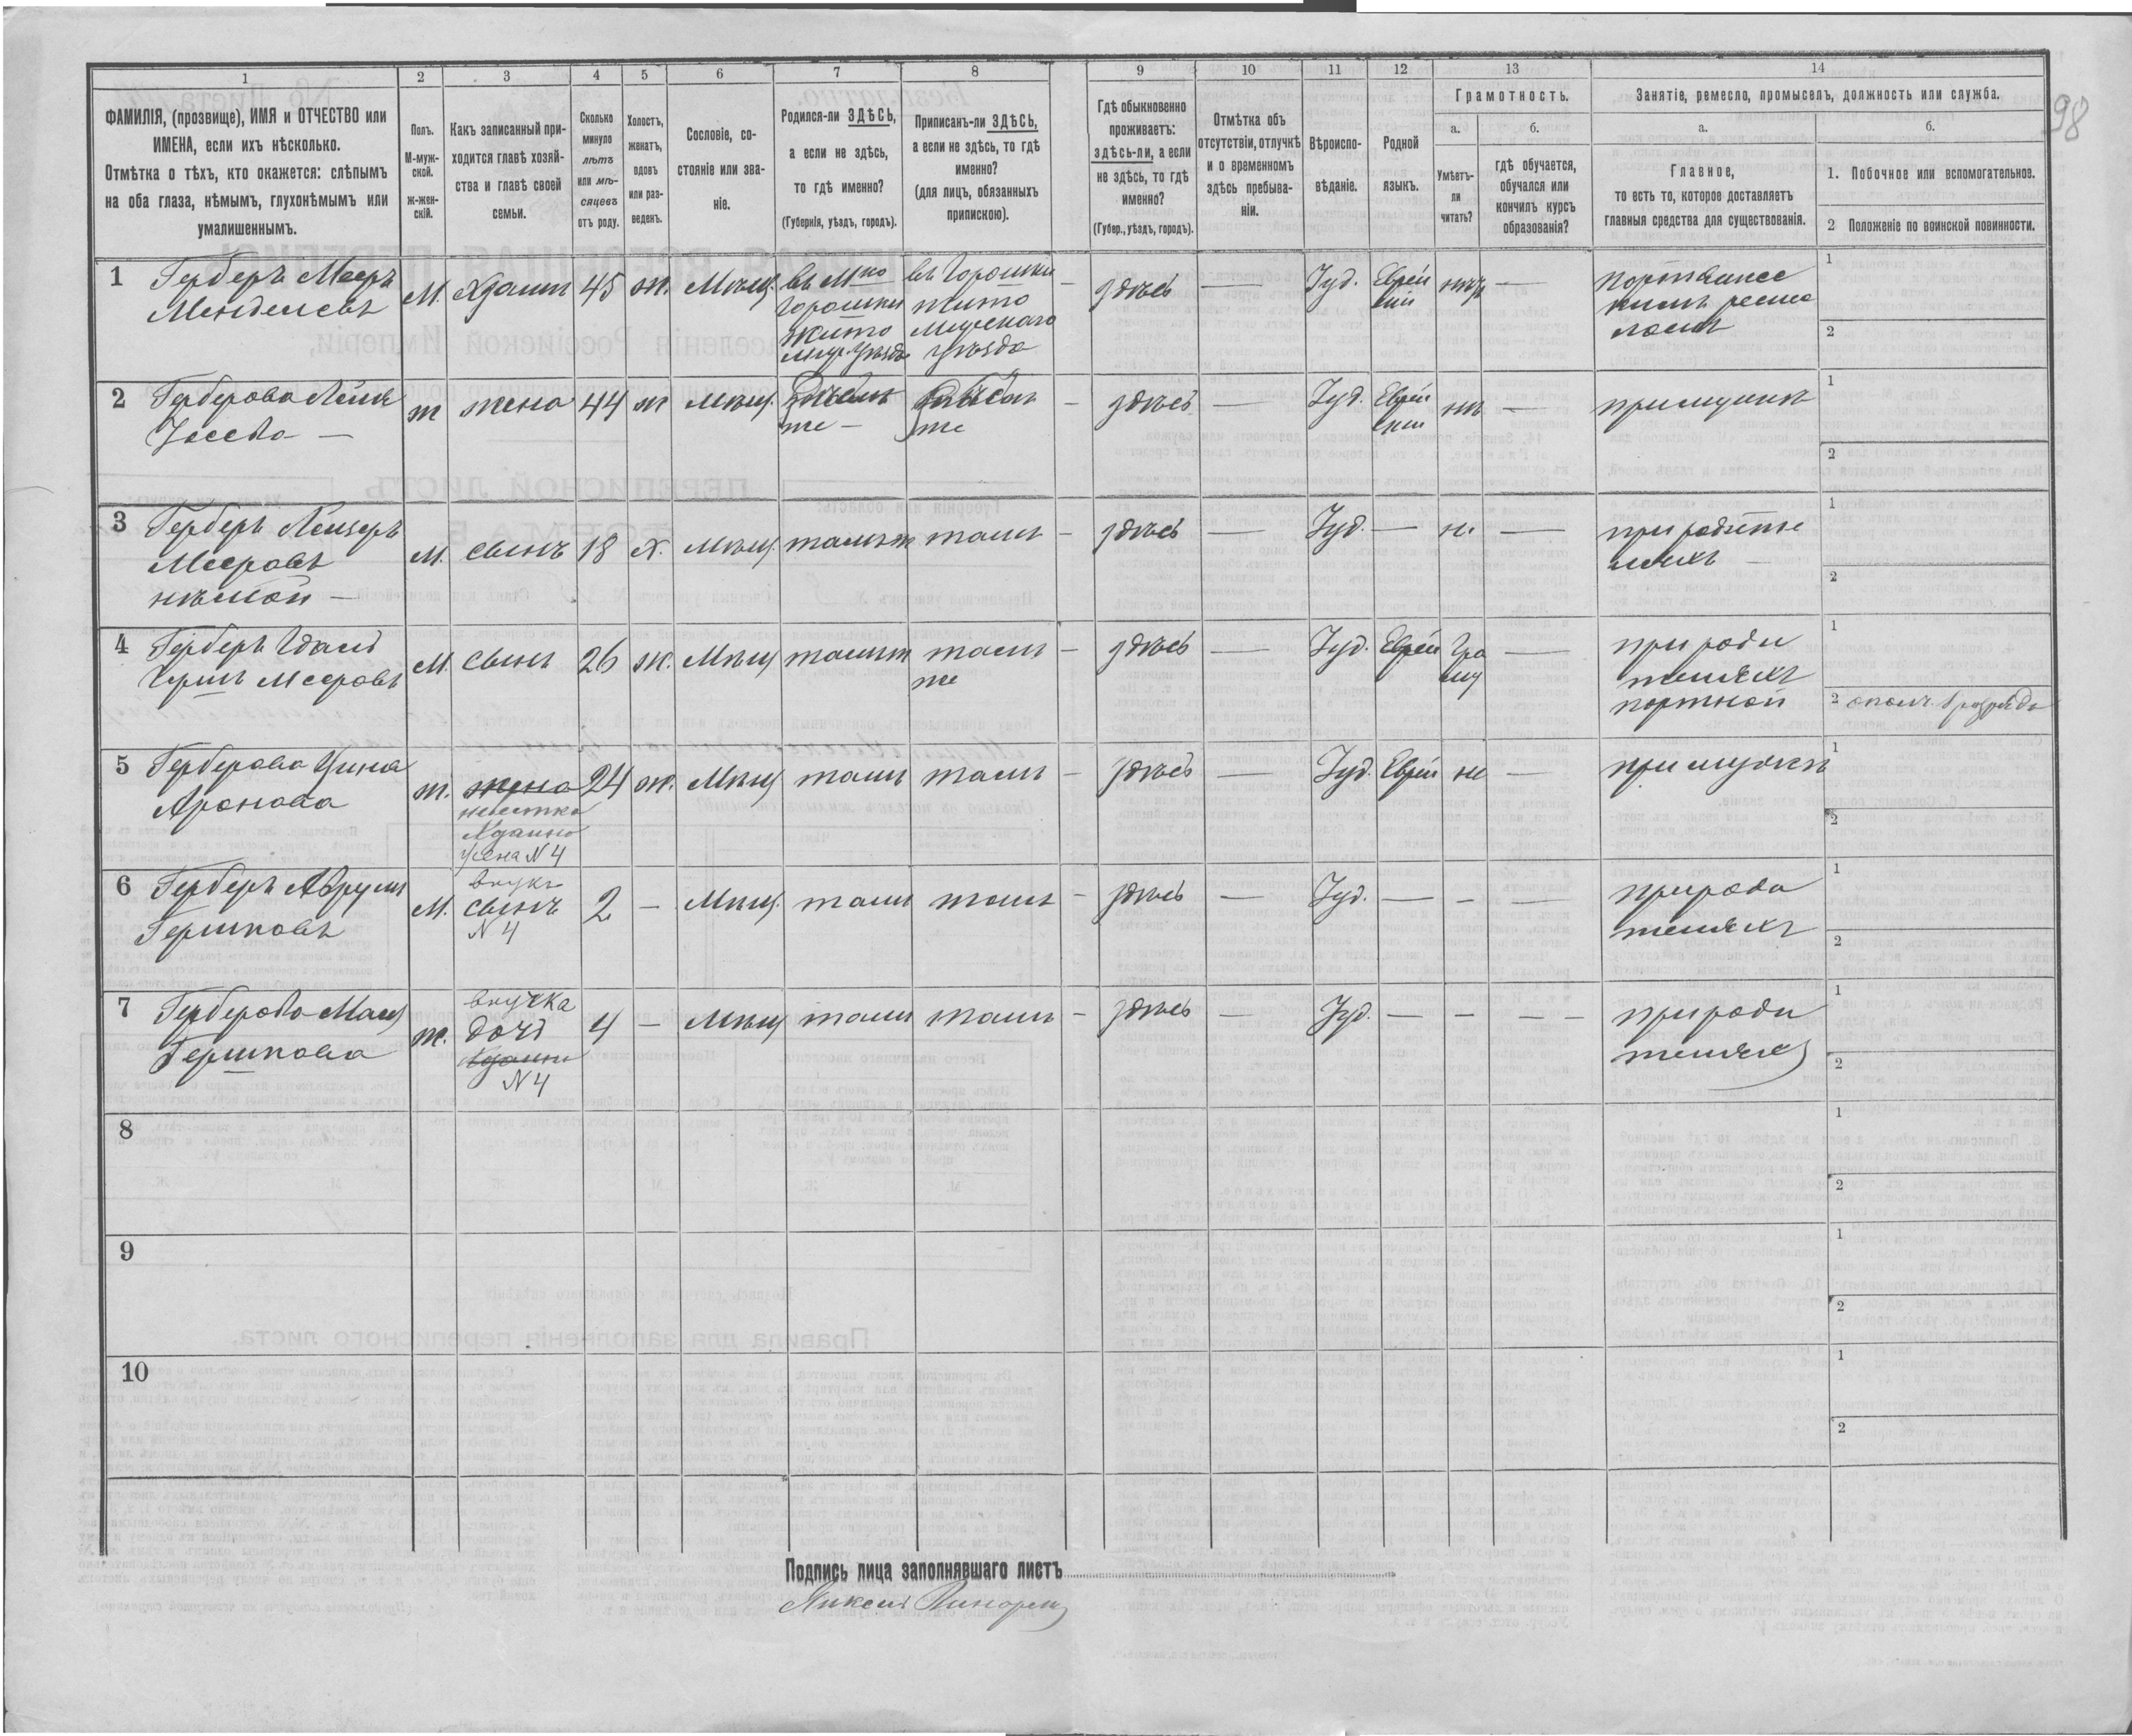 98
1 2 3 4 5 6 7 8 9 10 11 12 13 14
ФАМИЛІЯ, (прозвище), ИМЯ и ОТЧЕСТВО или
ИМЕНА, если ихъ нѣсколько.
Отмѣтка о тѣхъ, кто окажется: слѣпымъ
на оба глаза, нѣмымъ, глухонѣмымъ или
умалишеннымъ.
Полъ.
М-муж-
ской.
ж-жен-
скій.
Какъ записанный при-
ходится главѣ хозяй-
ства и главѣ своей
семьи.
Сколько
минуло
лѣтъ
или мѣ-
сяцевъ
отъ роду.
Холостъ,
женатъ,
вдовъ
или раз-
веденъ.
Сословіе, со-
стояніе или зва-
ніе.
Родился-ли ЗДѢСЬ,
а если не здѣсь,
то гдѣ именно?
(Губернія, уѣздъ, городъ).
Приписанъ-ли ЗДѢСЬ,
а если не здѣсь, то гдѣ
именно?
(для лицъ, обязанныхъ
припискою).
Гдѣ обыкновенно
проживаетъ:
здѣсь-ли, а если
не здѣсь, то гдѣ
именно?
(Губер., уѣздъ, городъ).
Отмѣтка объ
отсутствіи, отлучкѣ
и о временномъ
здѣсь пребыва-
ніи.
Вѣроиспо-
вѣданіе.
Родной
языкъ.
Грамотность.
а.
Умѣетъ-
ли
читать?
б.
гдѣ обучается,
обучался или
кончилъ курсъ
образованія?
Занятіе, ремесло, промыселъ, должность или служба.
а.
Главное,
то есть то, которое доставляетъ
главныя средства для существованія.
б.
1. Побочное или вспомогательное.
2 Положеніе по воинской повинности.
1 Герберъ Мееръ
Менделевъ
М.
Хозяинъ
45
ж.
Мѣщ.
въ Мко
Горошки
Жито
мир. Уѣзда
въ Горошки
Жито
мирскаго
уѣзда
здѣсь
—
Іуд.
Еврей
скій
нѣтъ
—
портняжес
кимъ ремес
ломъ
1
2
2 Герберова Лея
ж
жена
44
ж
Мѣщ.
же —
же
здѣсь
—
Іуд.
Еврей
ский
нѣ
—
при мужѣ
1
2
3 Герберъ Лейзеръ
Мееровъ
нѣмой —
М.
сынъ
18
х.
Мѣщ.
тамъ ж
тамъ
здѣсь
—
Іуд.
—
н.
—
при родите
ляхъ
1
2
4 Герберъ
Герш Мееровъ
М.
сынъ
26
ж.
Мѣщ
тамъ ж
тамъ
же
здѣсь
—
Іуд.
Еврей
—
при роди
теляхъ
портной
1
2 ополч. разряда
5 Герберова
Аронова
ж.
жена
невестка
Хозяино
жена N 4
24
ж.
Мѣщ
тамъ
тамъ
здѣсь
—
Іуд.
Еврей
не
—
при мужѣ
1
2
6 Герберъ Аврумъ
Гершковъ
М.
внукъ
сынъ
N 4
2
—
Мѣщ.
тамъ
тамъ
здѣсь
—
Іуд.
—
—
—
при роди
теляхъ
1
2
7 Герберова
Гершкова
ж.
внучка
дочь
N 4
4
—
Мѣщ
тамъ
тамъ
здѣсь
—
Іуд.
—
—
— —
при роди
теляхъ
1
2
8
1
2
9
1
2
10
1
2
Подпись лица заполнявшаго листъ